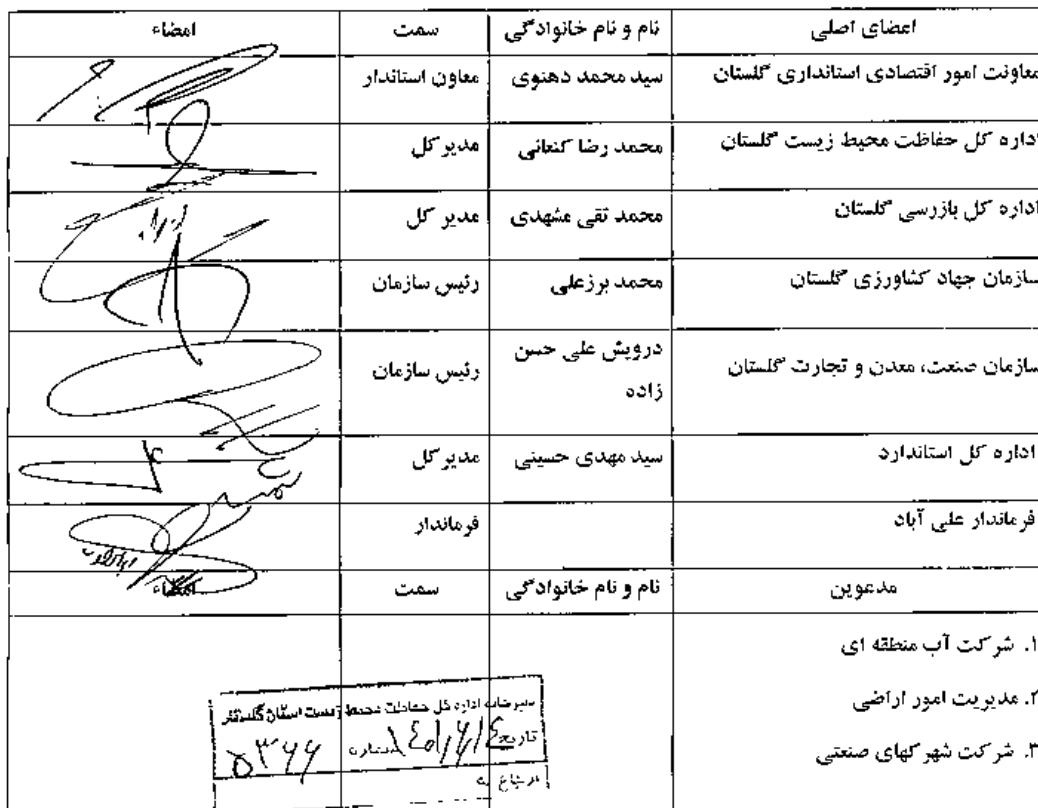 اعضای اصلی نام و نام خانوادگی سمت امضاء
معاونت امور اقتصادی استانداری گلستان سید محمد دهنوی معاون استاندار
اداره کل حفاظت محیط زیست گلستان محمد رضا کنعانی مدیر کل
اداره کل بازرسی گلستان محمد تقی مشهدی مدیر کل
سازمان جهاد کشاورزی گلستان محمد برزعلی رئیس سازمان
سازمان صنعت، معدن و تجارت گلستان درویش علی حسن زاده رئیس سازمان
اداره کل استاندارد سید مهدی حسینی مدیر کل
فرماندار علی آباد فرماندار
مدعوین نام و نام خانوادگی سمت امضاء
۱. شرکت آب منطقه ای
۲. مدیریت امور اراضی
۳. شرکت شهرکهای صنعتی
دبیرخانه اداره کل حفاظت محیط زیست استان گلستان
تاریخ ۱۴۰۱/۶/۱۴ شماره ۵۳۶۶